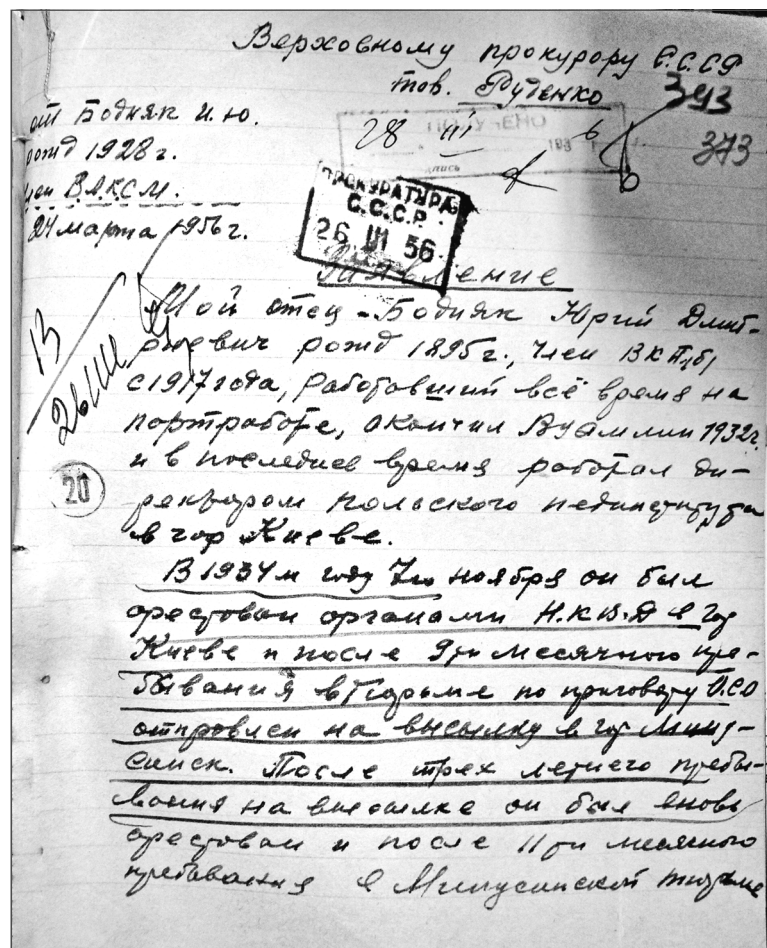 Верховному прокурору С.С.С.Р
тов. Руденко
393
373
от Бодняк И.Ю.
рожд 1928 г.
член ВЛКСМ.
24 марта 1956 г.
ПОЛУЧЕНО
28 III 6
ПРОКУРАТУРА
С.С.С.Р.
26 III 56
Заявление
Мой отец - Бодняк Юрий Дмит-
риевич рожд 1895 г., член ВКП(б)
с 1917 года, работавший всё время на
партработе, окончил Вуамлин 1932 г.
и в последнее время работал ди-
ректором польского пединститута
в гор Киеве.
В 1934 м году 7го ноября он был
арестован органами Н.К.В.Д в гор
Киеве и после 9ти месячного пре-
бывания в тюрьме по приговору О.С.О
отправлен на высылку в гор Мину-
синск. После трех летнего пребы-
вания на высылке он был вновь
арестован и после 11ти месячного
пребывания в Минусинской тюрьме
20
26 III